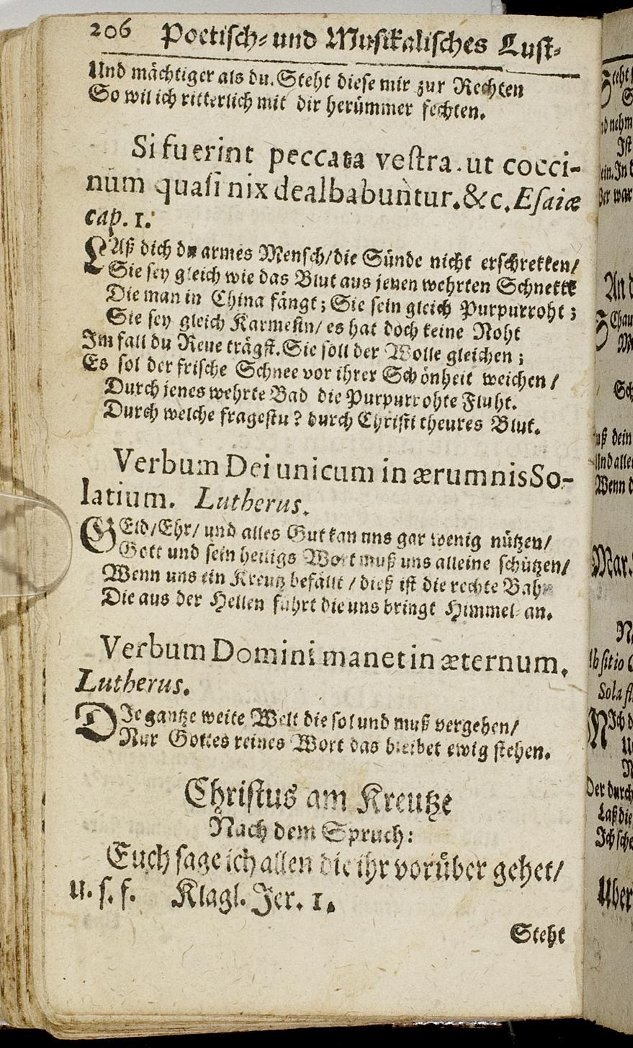 206 Poetisch- und Musikalisches Lust-
Und mächtiger als du. Steht diese mir zur Rechten
So wil ich ritterlich mit dir herümmer fechten.
Si fuerint peccata vestra. ut cocci-
num quasi nix dealbabuntur. &c. Esaiæ
cap. 1.
LAß dich du armes Mensch/die Sünde nicht erschrekken/
Sie sey gleich wie das Blut aus jenen wehrten Schnekken
Die man in China fängt; Sie sein gleich Purpurroht;
Sie sey gleich Karmesin/ es hat doch keine Noht
Im fall du Reue trägst. Sie soll der Wolle gleichen;
Es sol der frische Schnee vor ihrer Schönheit weichen/
Durch jenes wehrte Bad die Purpurrohte Fluht.
Durch welche fragestu? durch Christi theures Blut.
Verbum Dei unicum in ærumnis So-
latium. Lutherus.
GEld/Ehr/ und alles Gut kan uns gar wenig nützen/
Gott und sein heiligs Wort muß uns alleine schützen/
Wenn uns ein Kreutz befällt / dieß ist die rechte Bahn
Die aus der Hellen führt die uns bringt Himmel an.
Verbum Domini manet in æternum.
Lutherus.
DIe gantze weite Welt die sol und muß vergehen/
Nur Gottes reines Wort das bleibet ewig stehen.
Christus am Kreutze
Nach dem Spruch:
Euch sage ich allen die ihr vorüber gehet/
u. s. f. Klagl. Jer. 1.
Steht